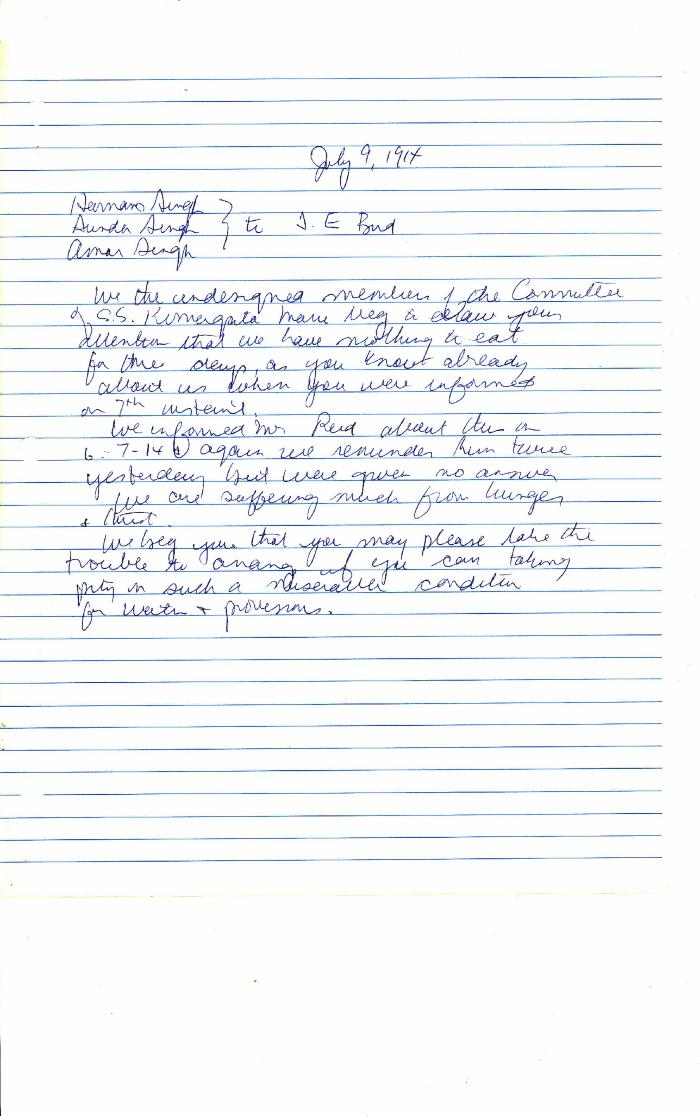 July 9, 1914
Harnam Singh
Sunder Singh } to J. E Bird
Amar Singh
We the undersigned members of the Committee
of S.S. Komagata Maru beg to draw your
attention that we have nothing to eat
for three days, as you know already
about us when you were informed
on 7th instant.
We informed Mr Reid about this on
6-7-14 & again we reminded him twice
yesterday but were given no answer
We are suffering much from hunger
& thirst.
We beg you that you may please take the
trouble to arrang if you can taking
pity on such a miserable condition
for water + provisions.